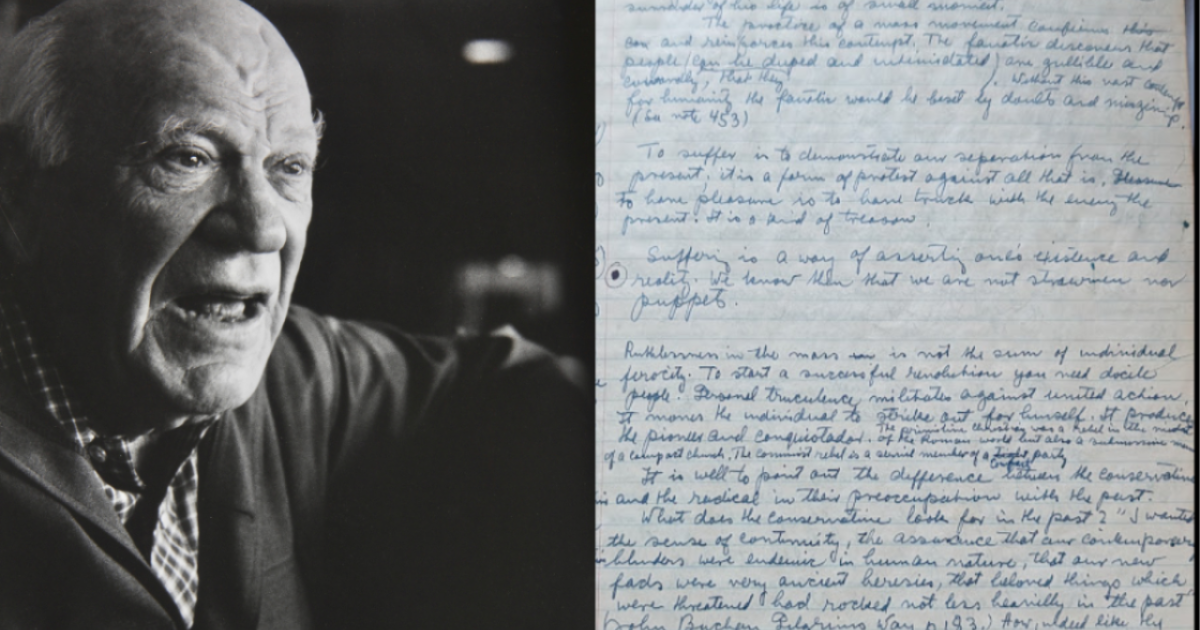 surrender of his life is of small moment.
The practice of a mass movement confirms this
con and reinforces this contempt. The fanatic discovers that
people (can be duped and intimidated) are gullible and
cowardly, that they . Without this vast contempt
for humanity the fanatic would be beset by doubts and misgiving
(See note 453)
To suffer is to demonstrate our separation from the
present; it is a form of protest against all that is. Pleasure
To have pleasure is to have truck with the enemy the
present. It is a kind of treason.
Suffering is a way of asserting one's existence and
reality. We know then that we are not strawmen nor
puppets.
Ruthlessness in the mass is not the sum of individual
ferocity. To start a successful revolution you need docile
people. Personal truculence militates against united action.
It moves the individual to strike out for himself. It produces
the pioneer and conquistador. The primitive christian was a rebel in the midst
of the Roman world but also a submissive
of a compact church. The communist rebel is a servil member of a compact party
It is well to point out the difference between the conservative
and the radical in their preoccupation with the past.
What does the conservative look for in the past? "I wanted
the sense of continuity, the assurance that our contemporary
blunders were endemic in human nature, that our new
fads were very ancient heresies, that beloved things which
were threatened had rocked not less heavily in the past
(John Buchan Pilgrims Way p 193.) How, indeed like the